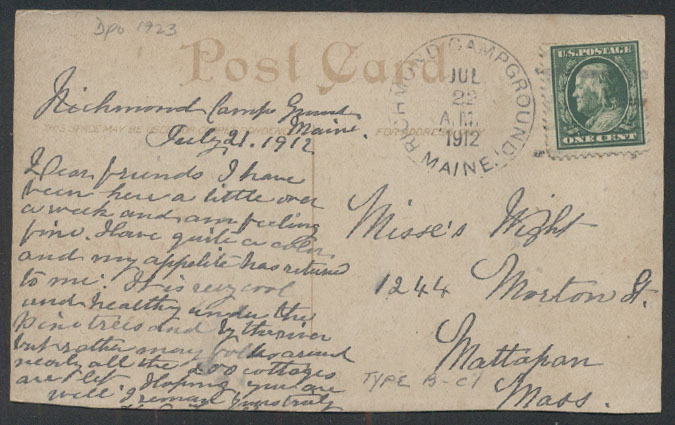 Dpo 1923
Post Card
RICHMOND CAMPGROUND, MAINE.
JUL
22
A.M.
1912
U.S. POSTAGE
ONE CENT
THIS SPACE MAY BE USED FOR
FOR ADDRESS
Richmond Camp Ground
Maine
July 21. 1912
Dear friends I have
been here a little over
a week and am feeling
fine. Have quite a color
and my appetite has returned
to me. It is very cool
and healthy under the
pine trees and by the river
but rather many folks around
nearly all the 200 cottages
are let. Hoping you are
well I remain yours truly
Misse's Wight
1244
Morton St.
Mattapan
Mass.
TYPE B-C1